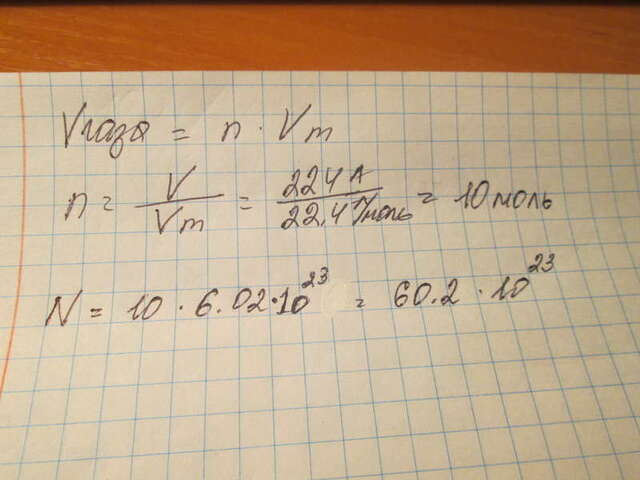 Vгаза = n · Vm
n = V / Vm = 224 л / 22,4 л/моль = 10 моль
N = 10 · 6.02 · 10²³ = 60.2 · 10²³